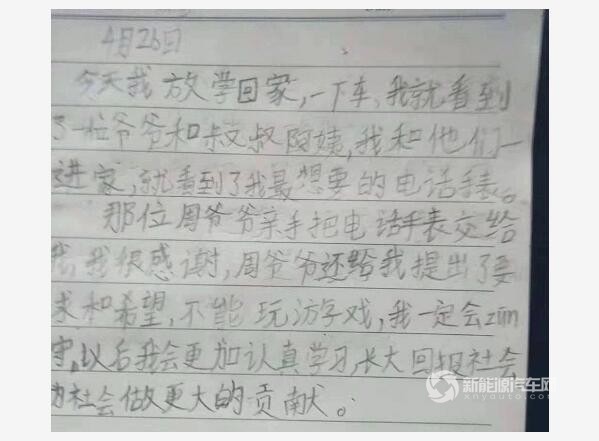 4月26日
今天我放学回家,一下车,我就看到
了一位爷爷和叔叔阿姨,我和他们一
进家,就看到了我最想要的电话手表。
那位周爷爷亲手把电话手表交给
我,我很感谢,周爷爷还给我提出了要
求和希望,不能玩游字戏,我一定会zūn
守,以后我会更加认真学习,长大回报社会
为社会做更大的贡献。
新能源汽车网
xnyauto.com